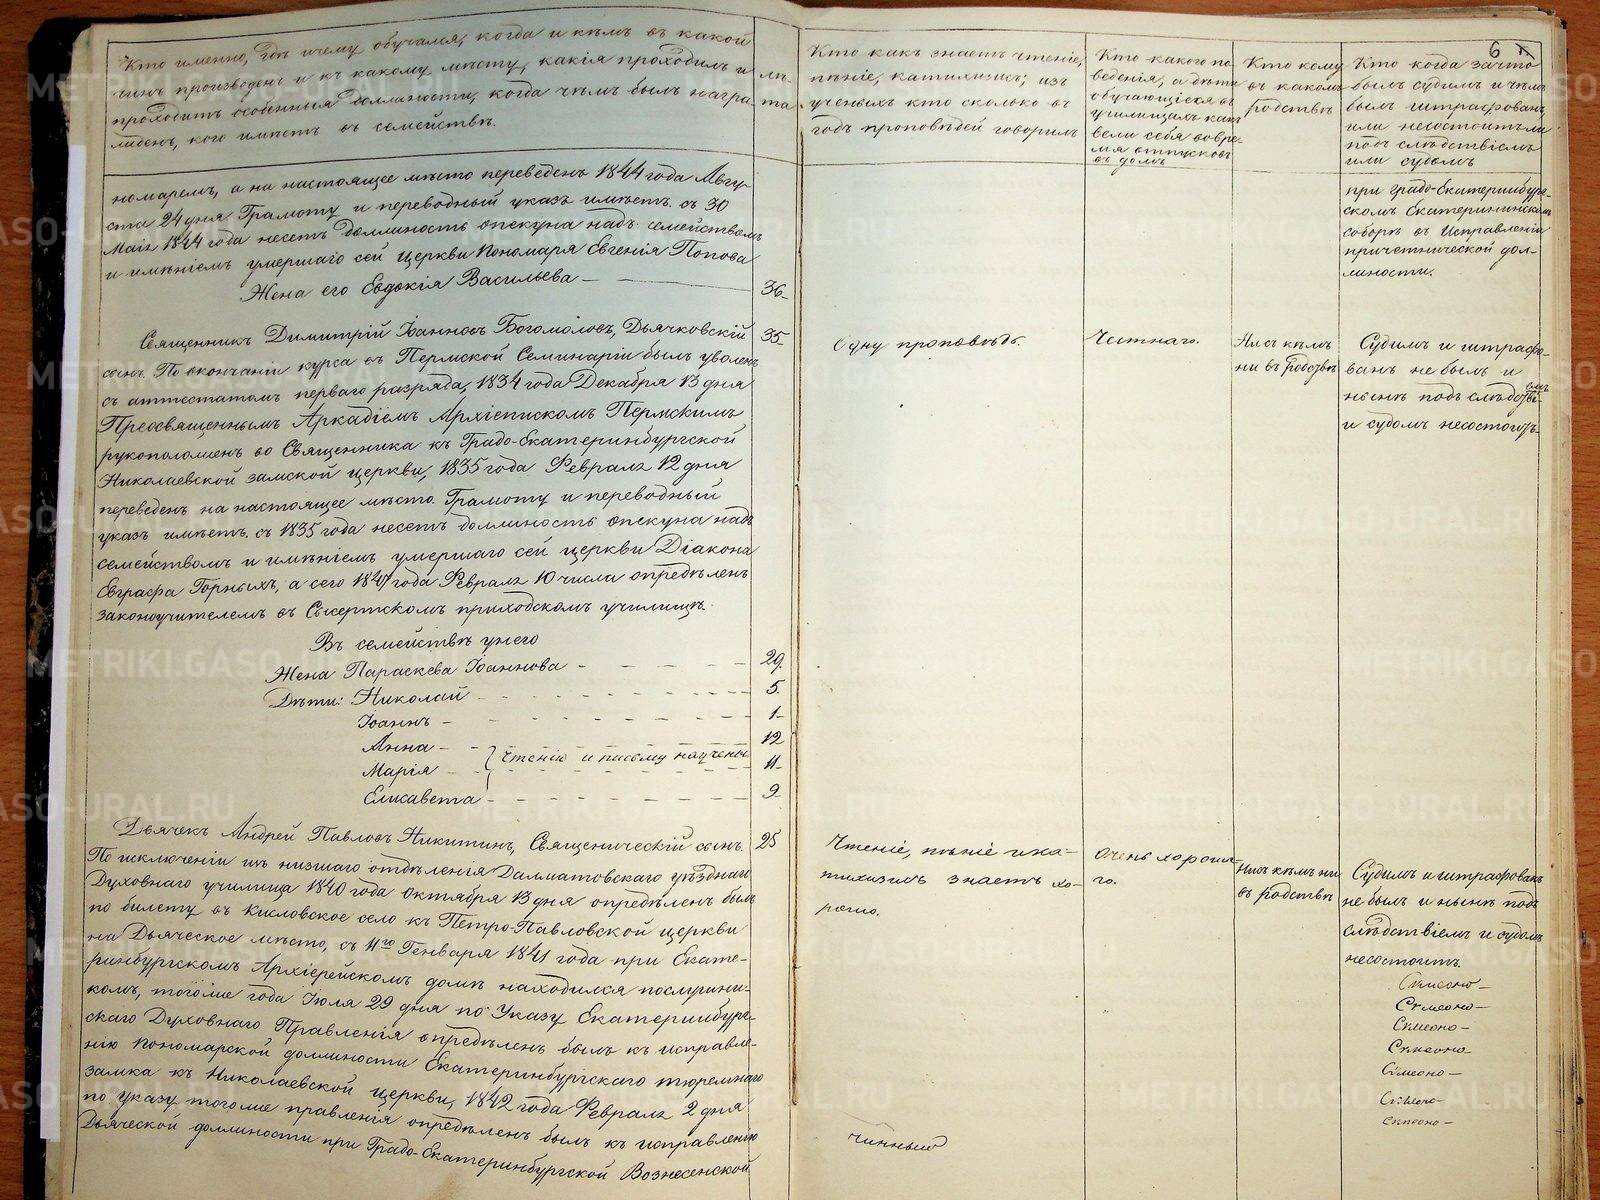 Кто именно, гдѣ и чему обучался, когда и кѣмъ въ какой
чинъ произведенъ и къ какому мѣсту, какія проходилъ и
проходитъ особенныя должности, когда чѣмъ былъ награ-
жденъ, кого имѣетъ въ семействѣ.
лѣ-
та
номаремъ, а на настоящее мѣсто переведенъ 1844 года Авгу-
ста 24 дня. Грамоту и переводный указъ имѣетъ. съ 30
Маія 1844 года несетъ должность опекуна надъ семействомъ
и имѣніемъ умершаго сей церкви Пономаря Евгенія Попова
Жена его Евдокія Васильева — 36
Священникъ Димитрій Іоанновъ Богомоловъ, Дьячковскій 35
сынъ. По окончаніи курса въ Пермской Семинаріи былъ уволенъ
съ аттестатомъ перваго разряда, 1834 года Декабря 13 дня
Преосвященнымъ Аркадіемъ Архіепископомъ Пермскимъ
рукоположенъ во Священника къ Градо-Екатеринбургской
Николаевской замской церкви, 1835 года Февраля 12 дня
переведенъ на настоящее мѣсто. Грамоту и переводный
указъ имѣетъ. съ 1835 года несетъ должность опекуна надъ
семействомъ и имѣніемъ умершаго сей церкви Діакона
Евграфа Горныхъ, а сего 1847 года Февраля 10 числа опредѣленъ
законоучителемъ въ Сысертскомъ приходскомъ училищѣ.
Въ семействѣ у него
Жена Параскева Іоаннова - - - - 29.
Дѣти: Николай - - - - 5.
Іоаннъ - - - - 1
Анна - - 12
Марія - - чтенію и письму научены 11
Елисавета - - - - 9
Дьячекъ Андрей Павловъ Никитинъ, Священническій сынъ. 25
По исключеніи изъ низшаго отдѣленія Далматовскаго уѣзднаго
Духовнаго училища 1840 года Октября 13 дня опредѣленъ былъ
по билету въ Кисловское село къ Петро-Павловской церкви
на Дьяческое мѣсто, съ 11го Генваря 1841 года при Екате-
ринбургскомъ Архіерейскомъ домѣ находился послушни-
комъ, тогоже года Іюля 29 дня по Указу Екатеринбург-
скаго Духовнаго Правленія опредѣленъ былъ къ исправле-
нію Пономарской должности Екатеринбургскаго тюремнаго
замка къ Николаевской церкви, 1842 года Февраля 2 дня
по указу тогоже правленія опредѣленъ былъ къ исправленію
Дьяческой должности при Градо-Екатеринбургской Вознесенской
6
Кто какъ знаетъ чтеніе,
пѣніе, катихизисъ; изъ
ученыхъ кто сколько въ
годъ проповѣдей говорилъ
Кто какого по-
веденія, а дѣти
обучающіеся въ
училищахъ какъ
вели себя во вре-
мя отпусковъ
въ домъ
Кто кому
въ какомъ
родствѣ
Кто когда за что
былъ судимъ и чѣмъ
былъ штрафованъ
или несостоитъ ли
подъ слѣдствіемъ
или судомъ
при градо-Екатеринбург-
скомъ Екатерининскомъ
соборѣ въ исправленіи
причетнической дол-
жности.
Одну проповѣдь.
Честнаго.
Ни съ кѣмъ
ни въ родствѣ
Судимъ и штрафо-
ванъ не былъ и
нынѣ подъ слѣдстві-
емъ
и судомъ несостоитъ
Чтеніе, пѣніе и ка-
тихизисъ знаетъ хо-
рошо.
Очень хороша-
го.
Ни съ кѣмъ ни
въ родствѣ
Судимъ и штрафованъ
не былъ и нынѣ подъ
слѣдствіемъ и судомъ
несостоитъ.
METRIKI.GASO-URAL.RU